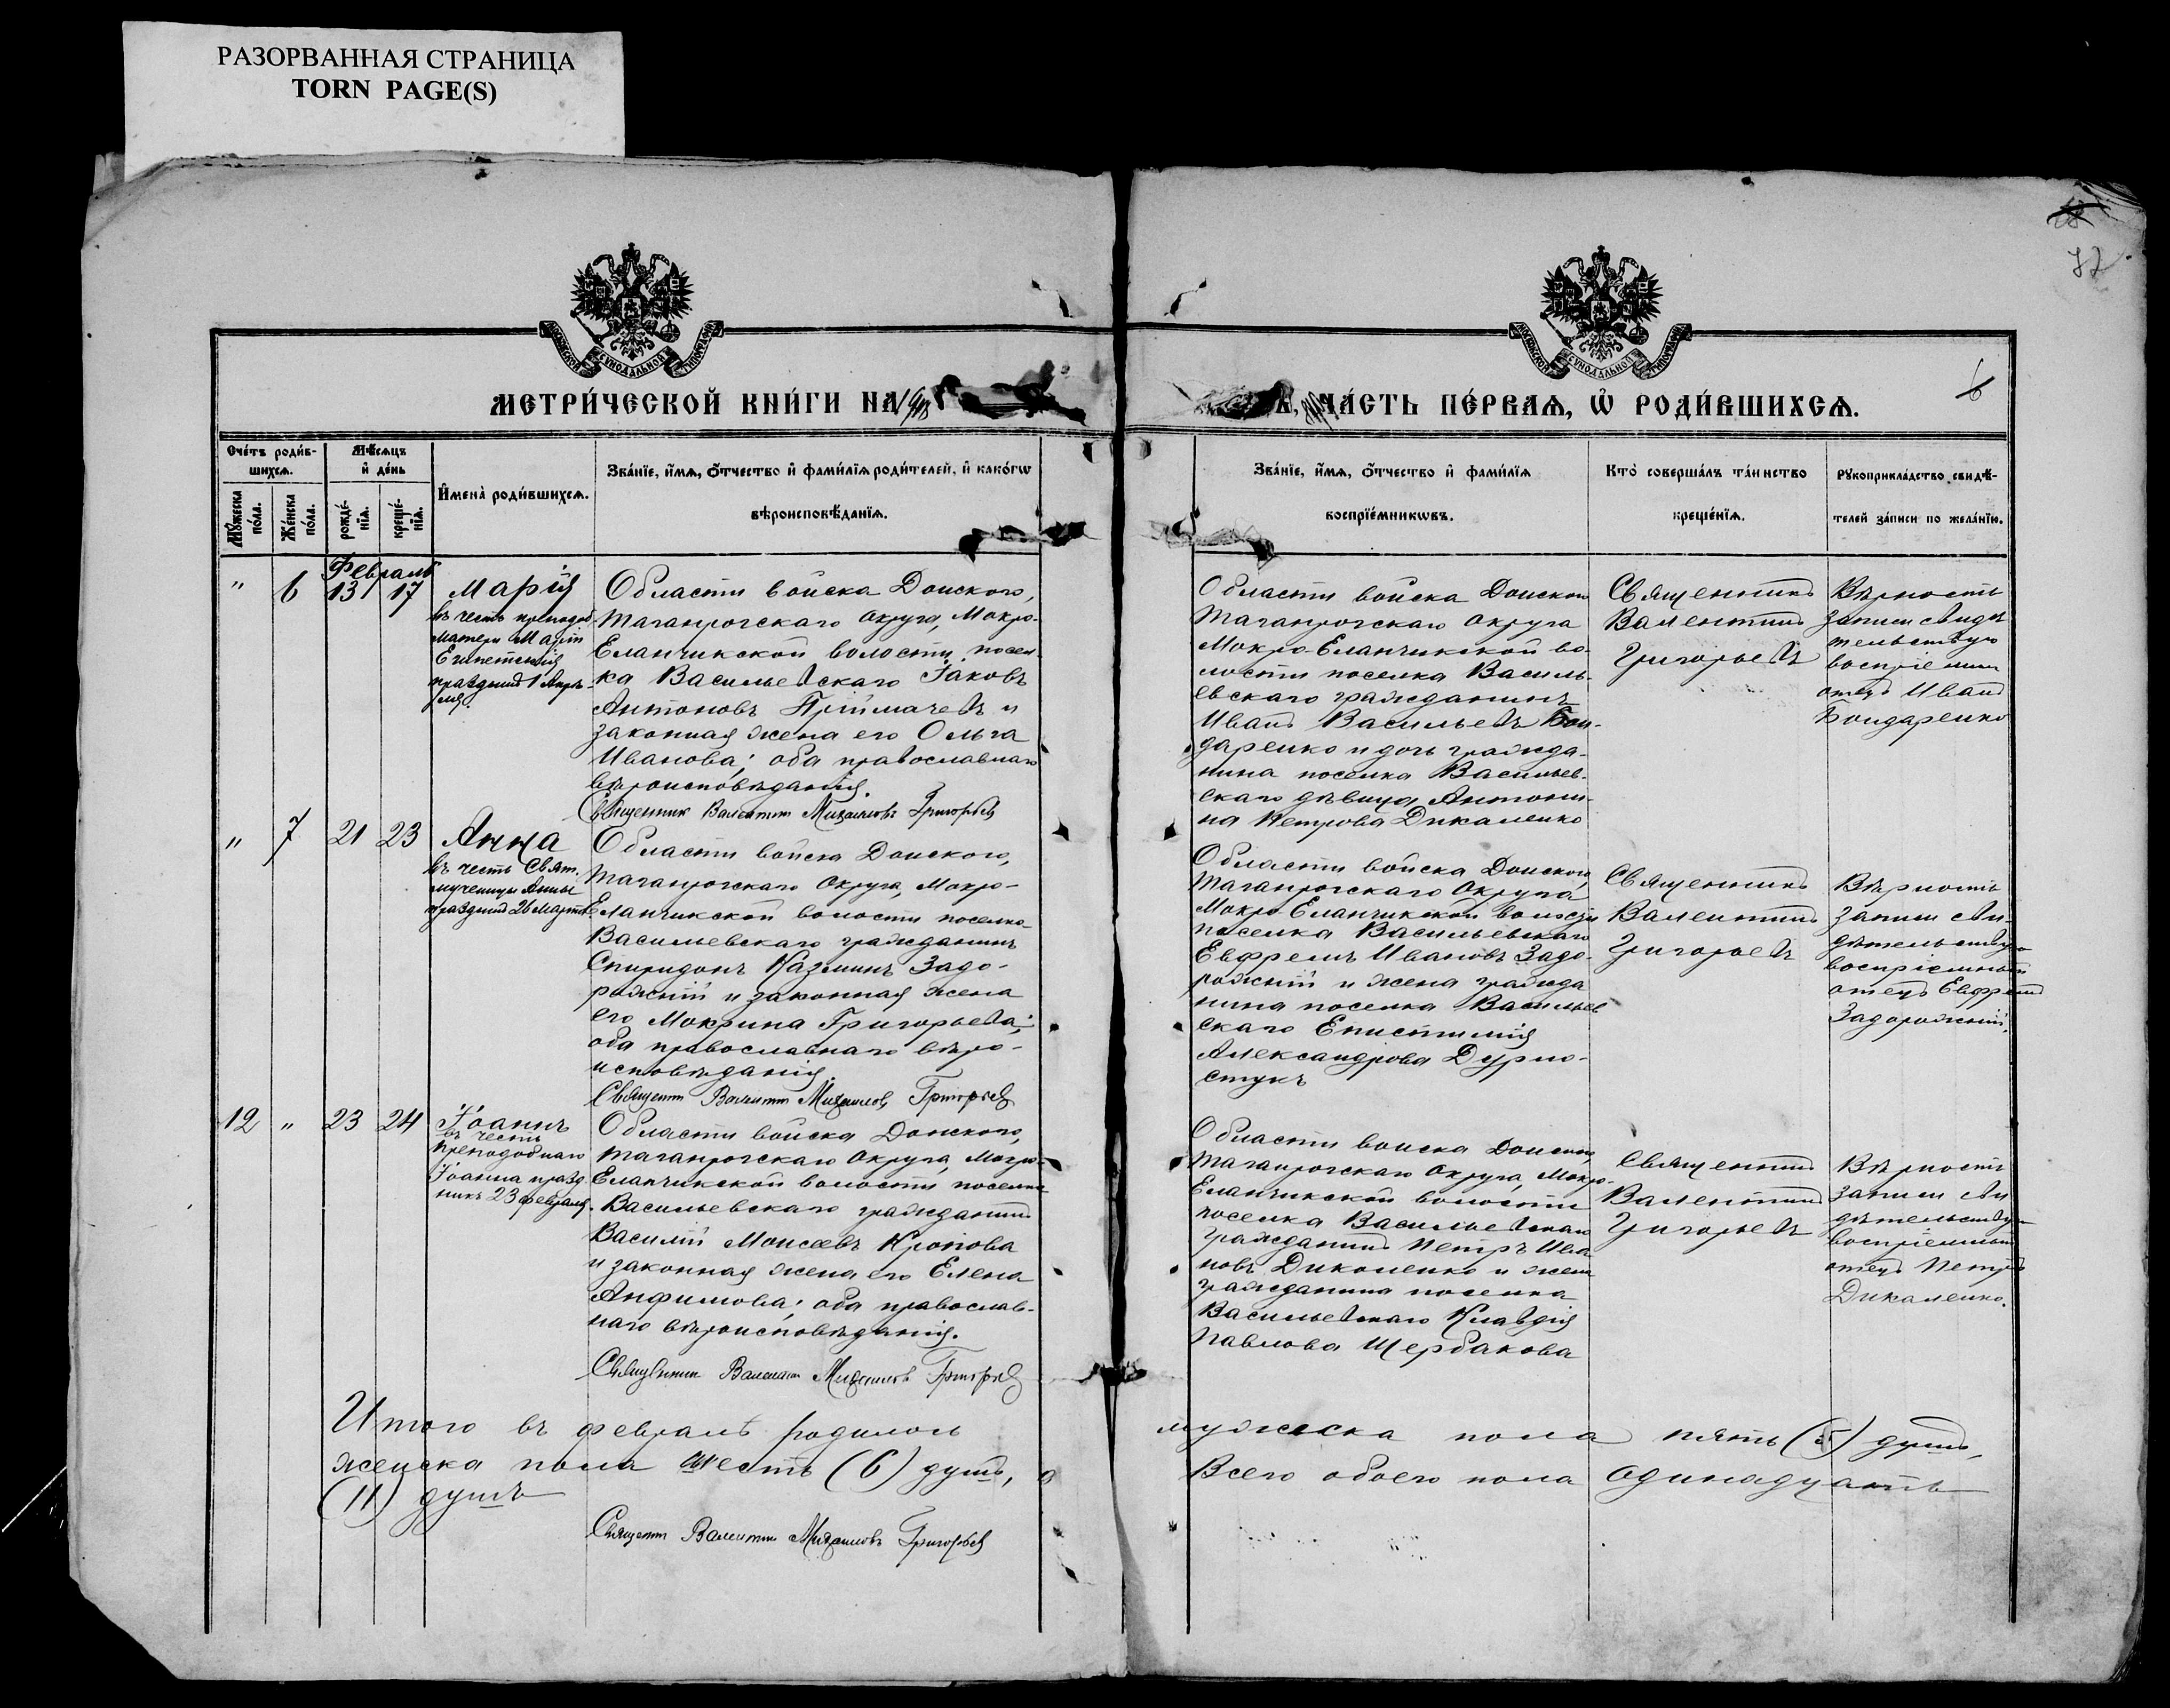 РАЗОРВАННАЯ СТРАНИЦА
TORN PAGE(S)
72
МОСКОВСКОЙ СѴНОДАЛЬНОЙ ТИПОГРАФІИ
МОСКОВСКОЙ СѴНОДАЛЬНОЙ ТИПОГРАФІИ
МЕТРИ́ЧЕСКОЙ КНИ́ГИ НА
ЧА́СТЬ ПЕ́РВАѦ, Ѽ РОДИ́ВШИХСѦ.
Сче́тъ роди́в-
шихсѧ.
Мꙋ́жеска
по́ла.
Же́нска
по́ла.
Мѣ́сѧцъ
и҆ де́нь
рожде́-
нїѧ.
креще́-
нїѧ.
И҆мена̀ роди́вшихсѧ.
Зва́нїе, и҆́мѧ, ѻ҆́тчество и҆ фами́лїѧ роди́телей, и҆ како́гѡ
вѣроисповѣ́данїѧ.
Зва́нїе, и҆́мѧ, ѻ҆́тчество и҆ фами́лїѧ
воспрїе́мникѡвъ.
Кто̀ соверша́лъ та́инство
креще́нїѧ.
Рꙋкоприкла́дство свидѣ́-
телей за́писи по жела́нїю.
Февраль
" 6 13 17
Марія
въ честь преподоб.
матери Маріи
Египетскія
праздник 1 Апрѣ-
ля.
Области войска Донского,
Таганрогскаго Округа, Мокро-
Еланчикской волости, посел-
ка Васильевскаго Іаковъ
Антоновъ Приймачевъ и
законная жена его Ольга
Иванова; оба православнаго
вѣроисповѣданія.
Священник Валентин Михаиловъ Григорьев
Области войска Донского
Таганрогскаго Округа
Мокро-Еланчикской во-
лости поселка Василь-
евскаго гражданинъ
Иванъ Васильевъ Бон-
даренко и дочь гражда-
нина поселка Васильев-
скаго дѣвица Антони-
на Петрова Дикаленко
Священникъ
Валентинъ
Григорьевъ
Вѣрность
записи свидѣ
тельствую
отецъ Иванъ
Бондаренко
" 7 21 23
Анна
въ честь Свят.
мученицы Анны
праздник 26 Марта
Области войска Донского,
Таганрогскаго Округа, Мокро-
Еланчикской волости поселка
Васильевскаго гражданинъ
Спиридонъ Казминъ Задо-
рожній и законная жена
его Мокрина Григорьева;
оба православнаго вѣро-
исповѣданія.
Священник Валентин Михаилов Григорьев
Области войска Донского,
Таганрогскаго Округа
Мокро-Еланчикской волости
поселка Васильевскаго
Евфремъ Ивановъ Задо-
рожній и жена гражда
нина поселка Васильев
скаго Епистимія
Александрова Дурно-
стукъ
Священникъ
Валентинъ
Григорьевъ
Вѣрность
записи сви-
дѣтельствую
воспріемный
отецъ Евфремъ
Задорожній.
12 " 23 24
Іоаннъ
въ честь
Преподобнаго
Іоанна празд
никъ 23 февраля.
Области войска Донского,
Таганрогскаго Округа, Мокро-
Еланчикской волости поселка
Васильевскаго гражданинъ
Василій Моисеевъ
и законная жена его Елена
Анфимова; оба православ-
наго вѣроисповѣданія.
Священник Валентин Михаиловъ Григорьев
Области войска Донского,
Таганрогскаго Округа, Мокро-
Еланчикской волости
поселка Васильевскаго
гражданинъ Петръ Ива
новъ Дикаленко и жена
гражданина поселка
Васильевскаго Клавдія
Павлова Щербакова
Священникъ
Валентинъ
Григорьевъ
Вѣрность
записи сви
дѣтельствую
воспріемный
отецъ Петръ
Дикаленко.
Итого въ февралѣ родилось мужеска пола пять (5) душъ,
женска пола шесть (6) душъ, Всего обоего пола одинадцать
(11) душъ
Священник Валентин Михаиловъ Григорьев